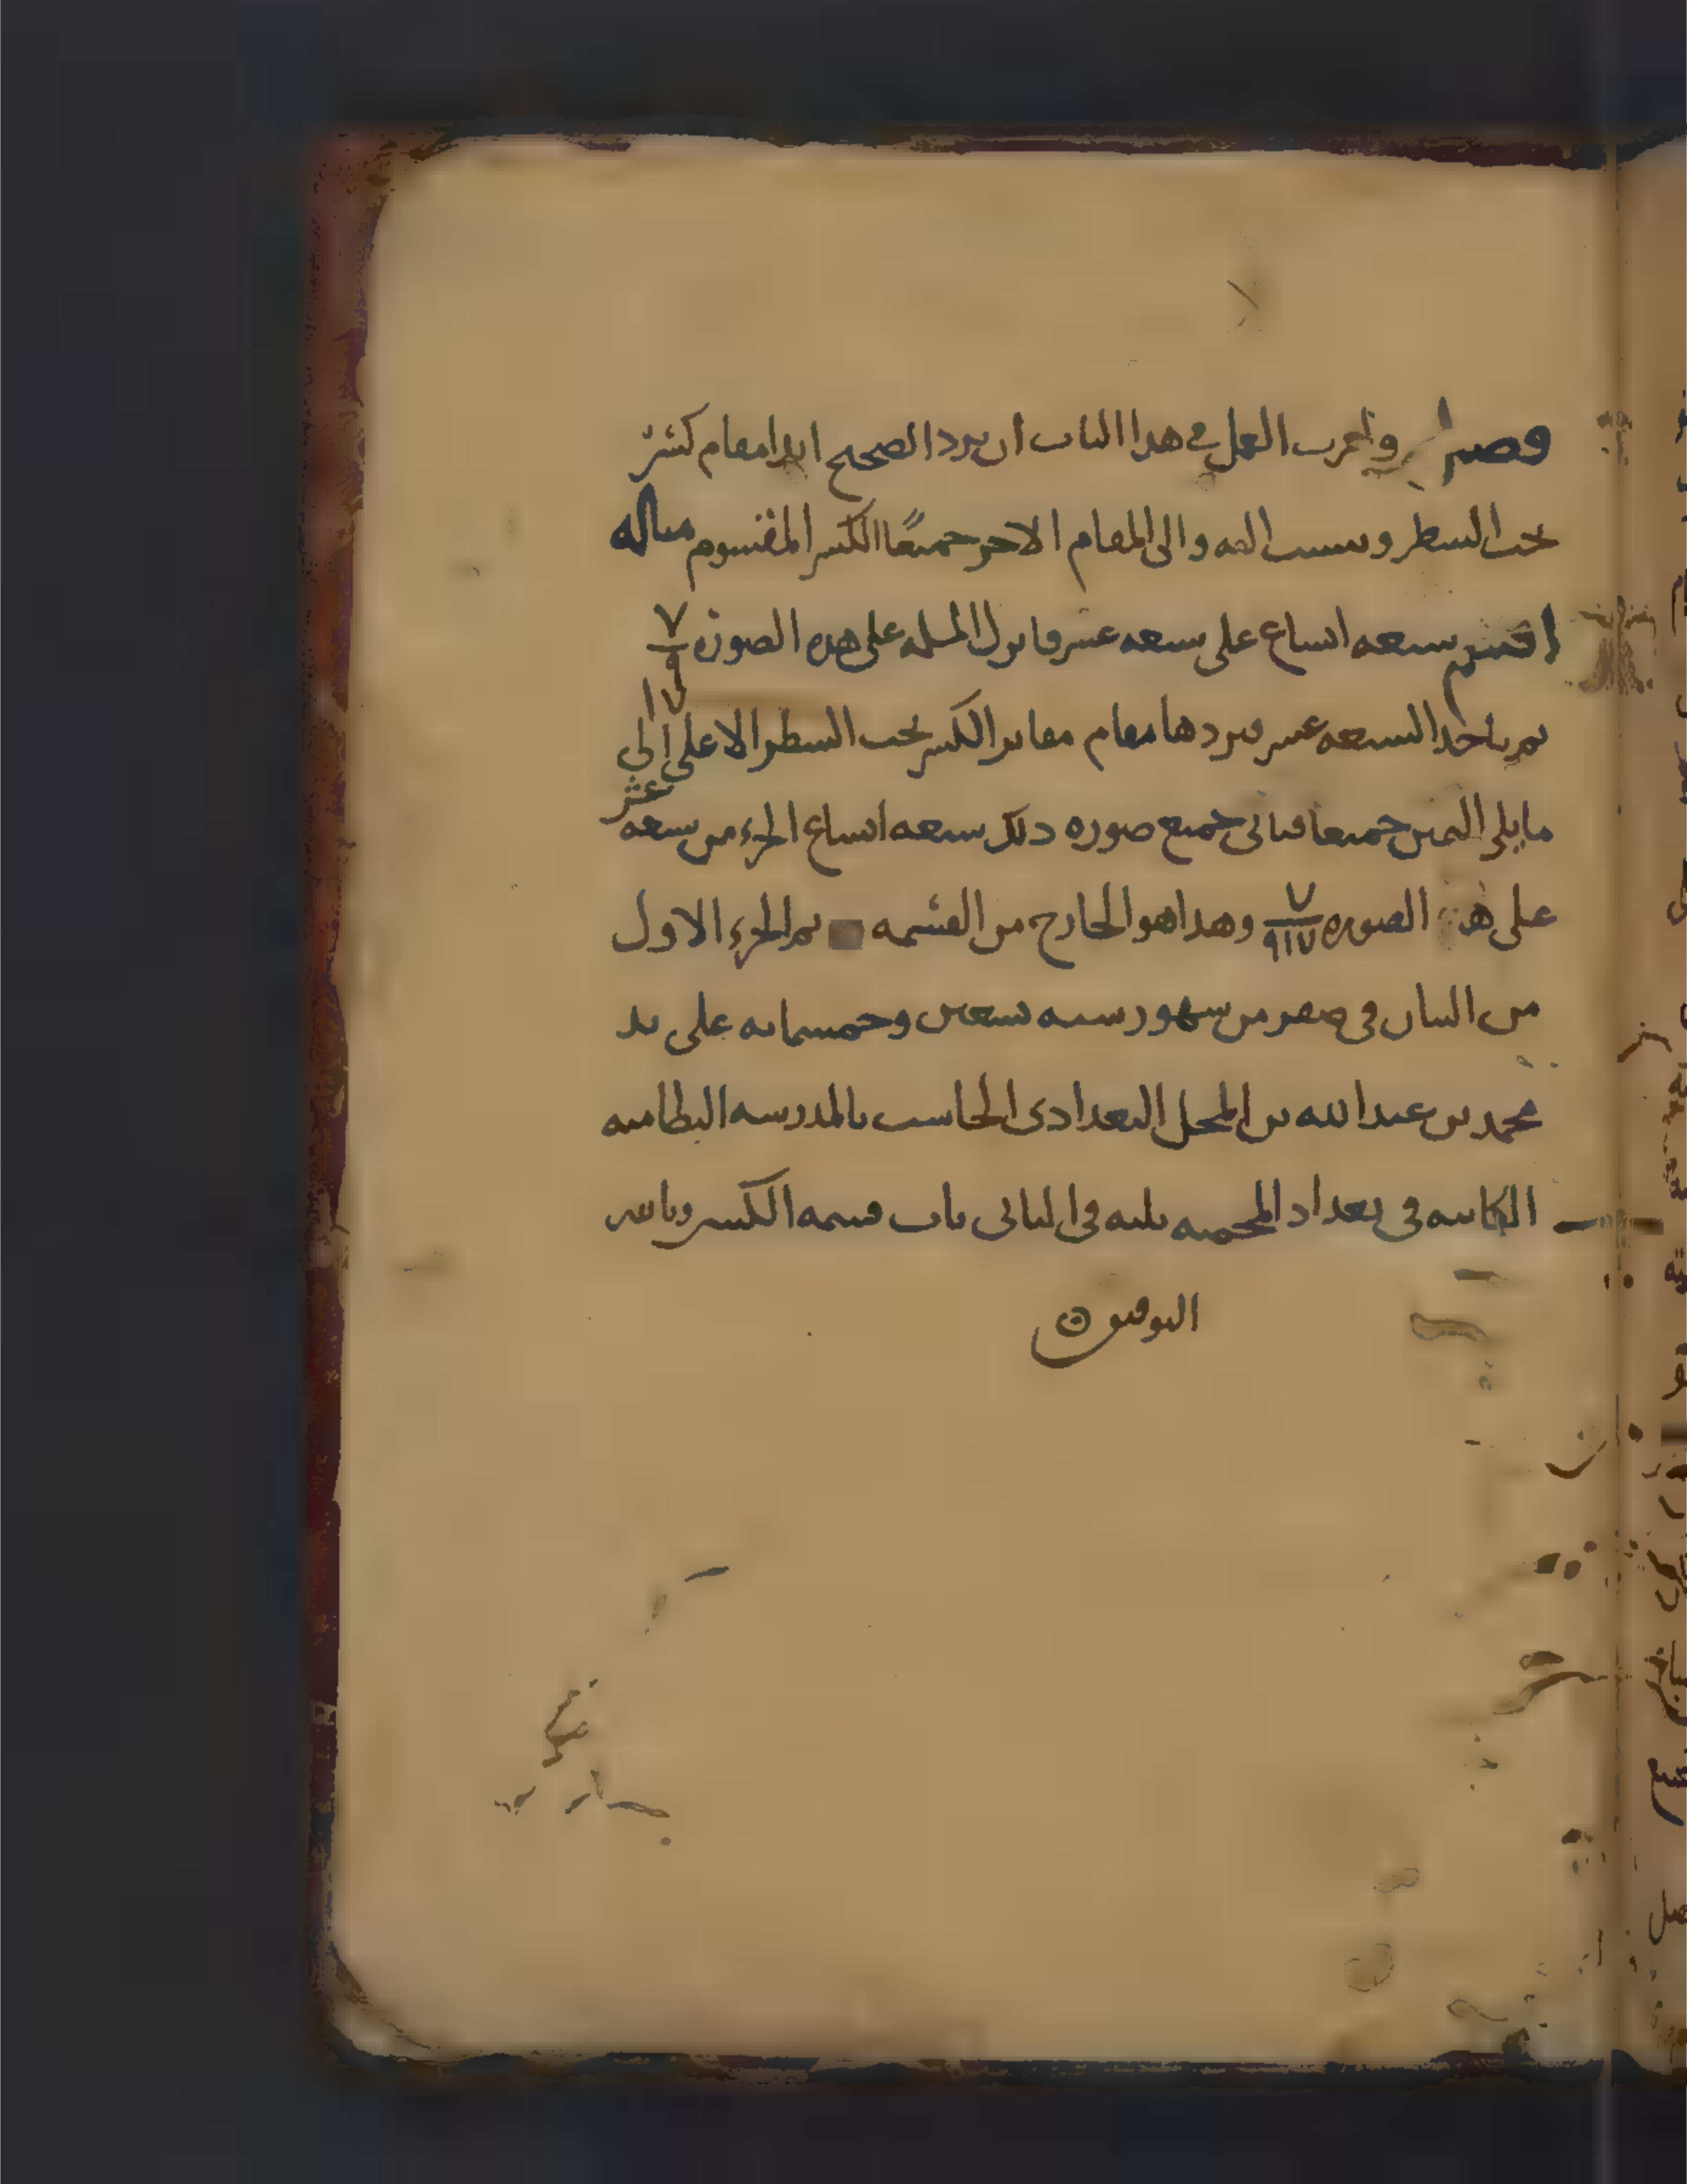 فصل واقرب العمل في هذا الباب ان يرد الصحيح ابدا مقام كسر
تحت السطر وينسب اليه والى المقام الاخر جميعًا الكسر المقسوم مثاله
اقسم سبعه اتساع على سبعه عشر فانزل المسله على هذه الصورة ٧ ٩ ١٧
ثم تاخذ السبعه عشر فيردها مقام مقابر الكسر تحت السطر الاعلى الى
ما يلي اليمين جميعا فياتي جميع صوره ذلك سبعه اتساع الجزء من سبعه عشر
على هذه الصوره ٧ ٩١٧ وهذا هو الخارج من القسمه تم الجزء الاول
من البيان في صفر من شهور سنه تسعين وخمسمائه على يد
محمد بن عبد الله بن المحل البغدادي الحاسب بالمدرسه النظاميه
الكائنه في بغداد المحميه يليه في الثاني باب قسمه الكسر وبالله
التوفيق